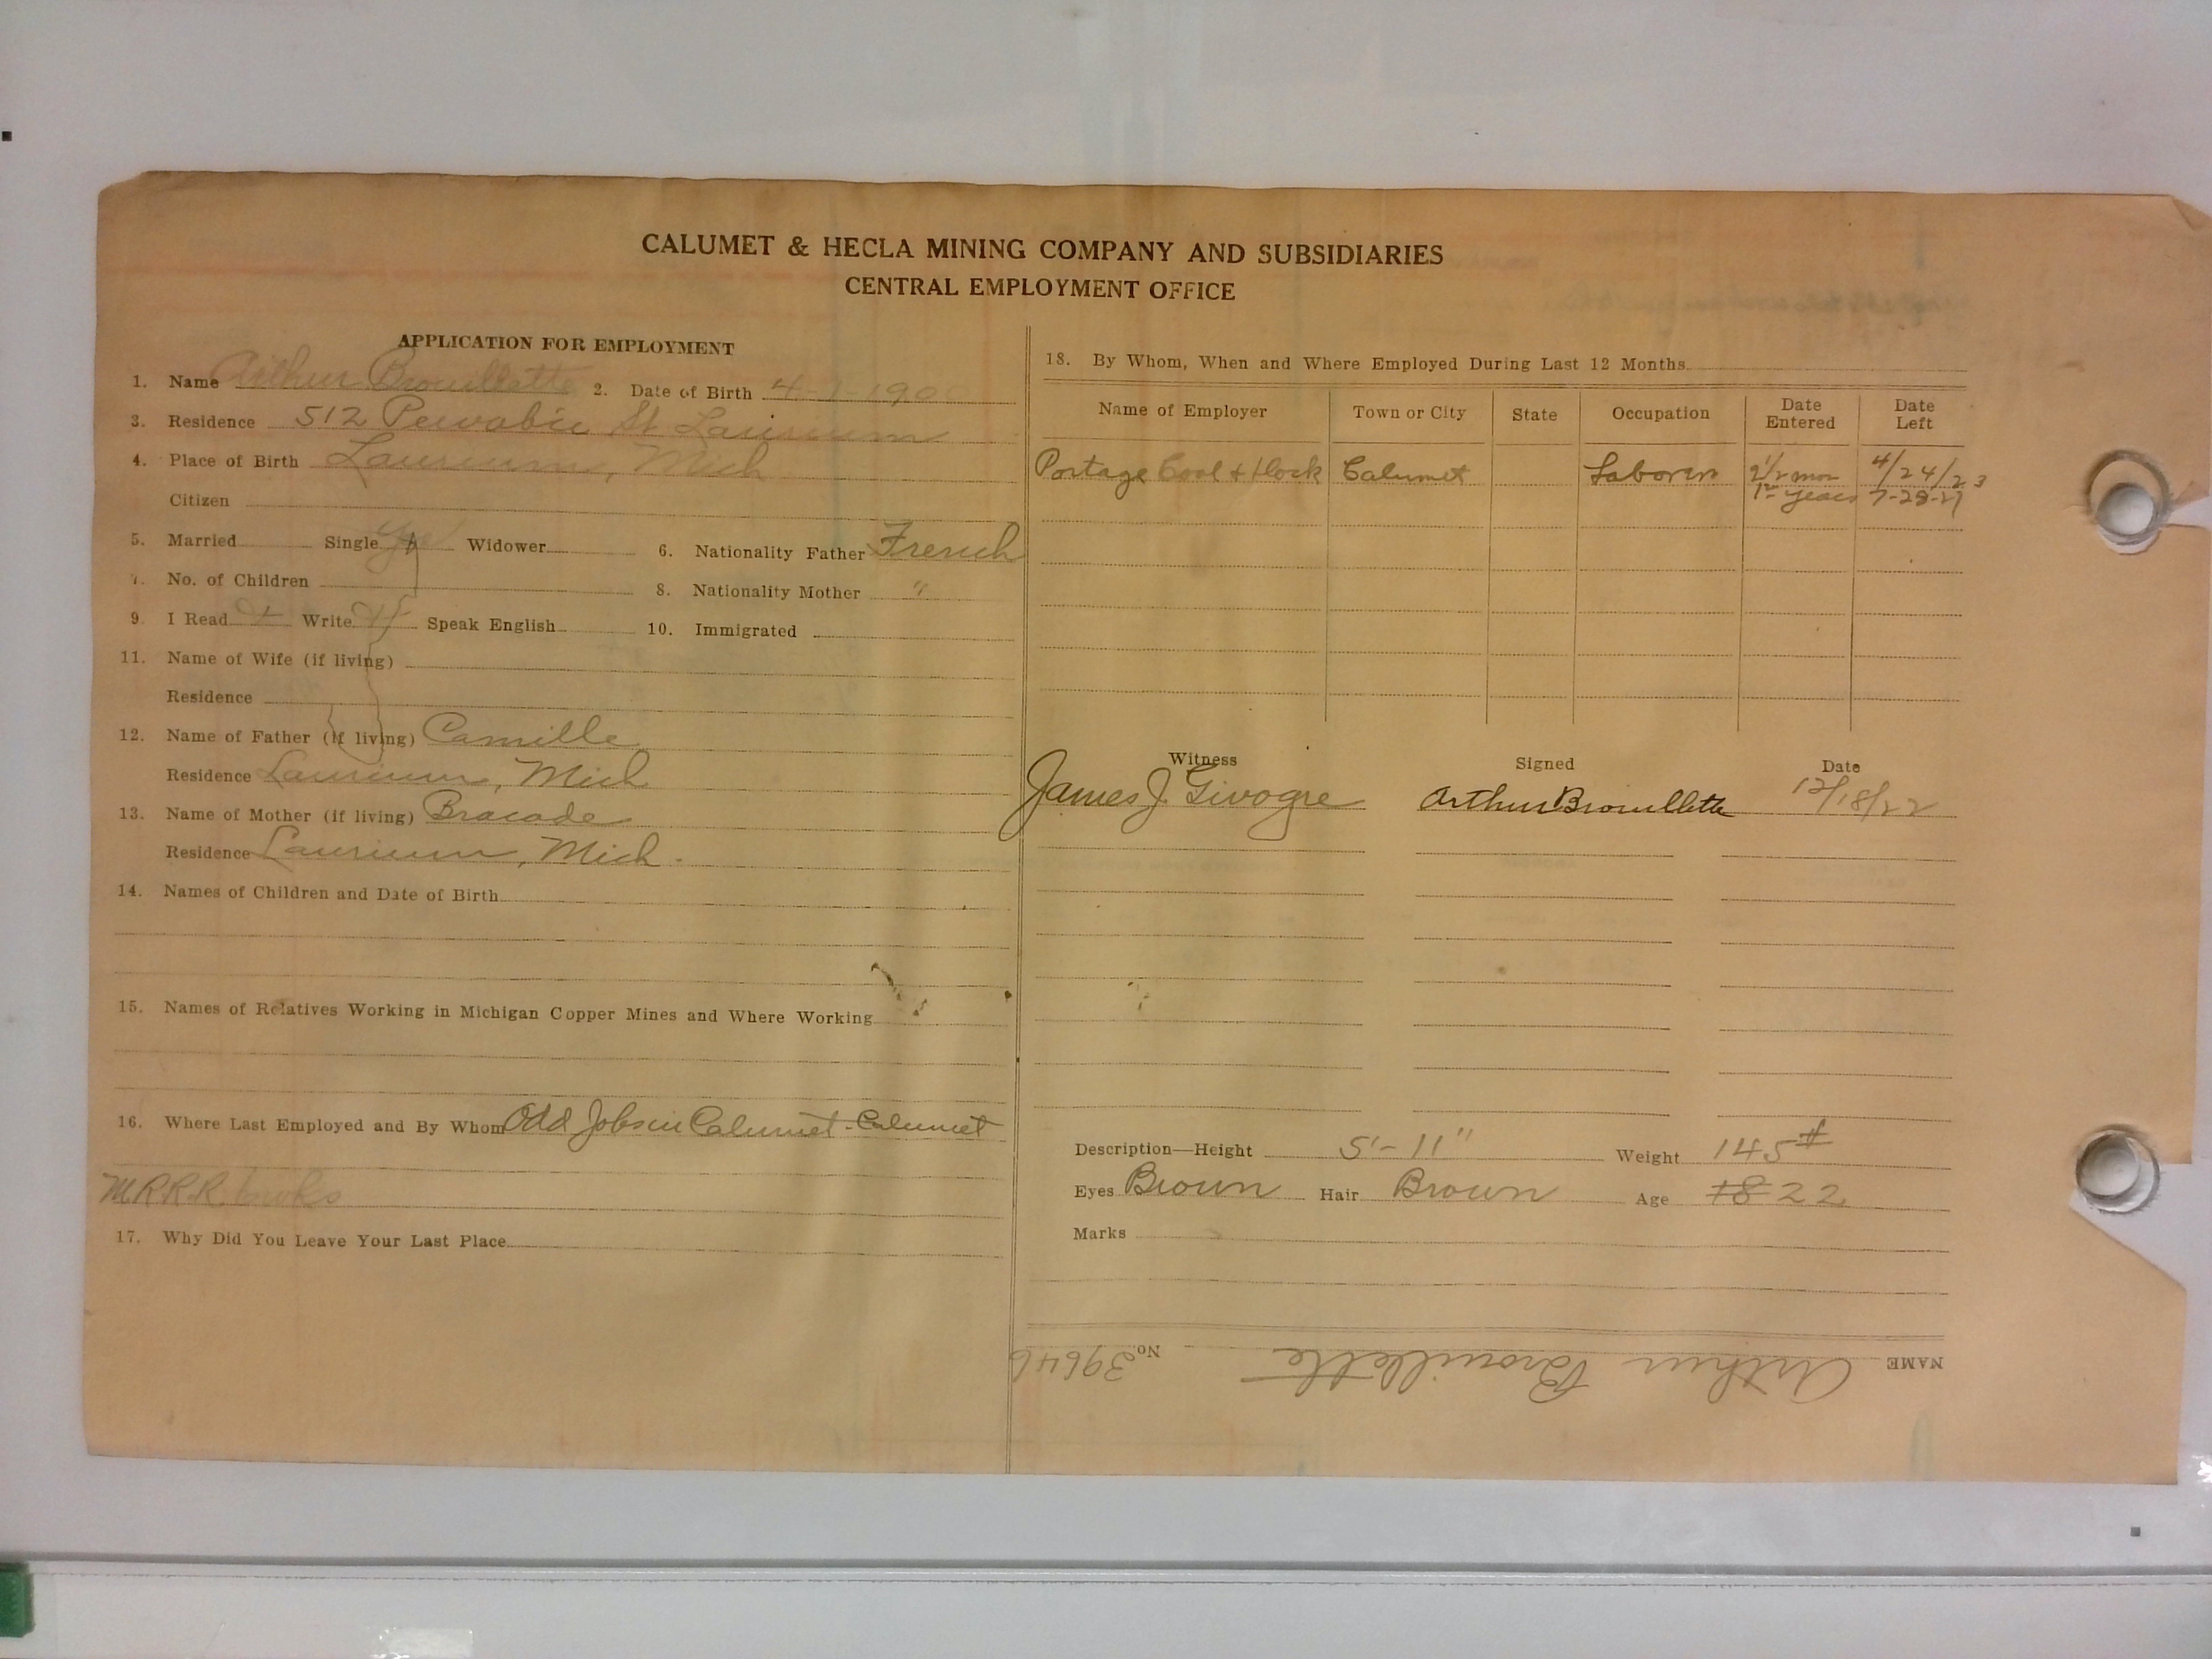 CALUMET & HECLA MINING COMPANY AND SUBSIDIARIES
CENTRAL EMPLOYMENT OFFICE
APPLICATION FOR EMPLOYMENT
1. Name Arthur Brouillette 2. Date of Birth 4-7-190
3. Residence 512 Pewabic St Laurium
4. Place of Birth Laurium, Mich
Citizen
5. Married Single Yes Widower 6. Nationality Father French
7. No. of Children 8. Nationality Mother "
9. I Read Write Speak English 10. Immigrated
11. Name of Wife (if living)
Residence
12. Name of Father (if living) Camille
Residence Laurium, Mich
13. Name of Mother (if living) Bracade
Residence Laurium, Mich.
14. Names of Children and Date of Birth
15. Names of Relatives Working in Michigan Copper Mines and Where Working
16. Where Last Employed and By Whom Odd Jobs in Calumet - Calumet
M.R.R.R.
17. Why Did You Leave Your Last Place
18. By Whom, When and Where Employed During Last 12 Months
Name of Employer Town or City State Occupation Date Entered Date Left
Portage Coal & Dock Calumet Laborer 2 1/2 mos 4/24/23
years 7-28-27
Witness Signed Date
James J. Givogre Arthur Brouillette 12/18/22
Description—Height 5'-11" Weight 145#
Eyes Brown Hair Brown Age 18 22
Marks
NAME Arthur Brouillette No. 39646